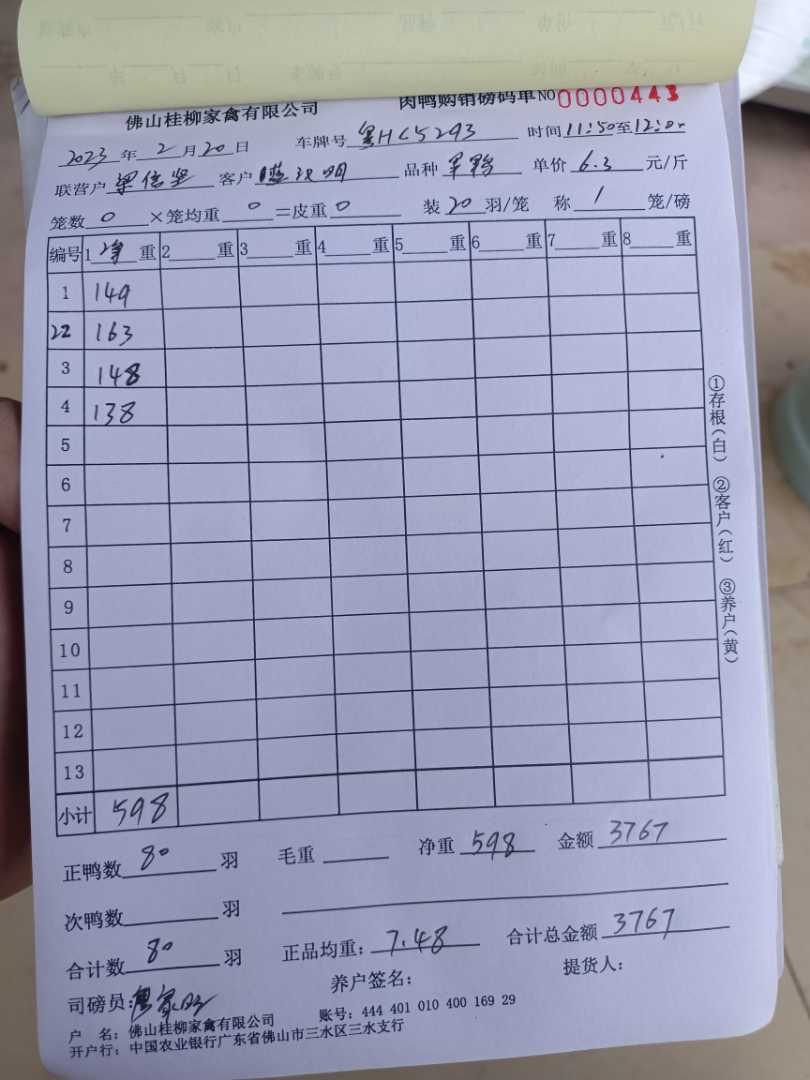 佛山桂柳家禽有限公司 肉鸭购销磅码单 NO 0000443
2023 年 2 月 20 日 车牌号 粤HC5293 时间 11:50 至 12:00
联营户 梁信坚 客户 明 品种 单价 6.3 元/斤
笼数 0 ×笼均重 0 =皮重 0 装 20 羽/笼 称 1 笼/磅
编号 1 净 重 2 重 3 重 4 重 5 重 6 重 7 重 8 重
1 149
22 163
3 148
4 138
5
6
7
8
9
10
11
12
13
小计 598
①存根(白) ②客户(红) ③养户(黄)
正鸭数 80 羽 毛重 净重 598 金额 3767
次鸭数 羽
合计数 80 羽 正品均重: 7.48 合计总金额 3767
司磅员: 养户签名: 提货人:
户 名: 佛山桂柳家禽有限公司 账号: 444 401 010 400 169 29
开户行: 中国农业银行广东省佛山市三水区三水支行